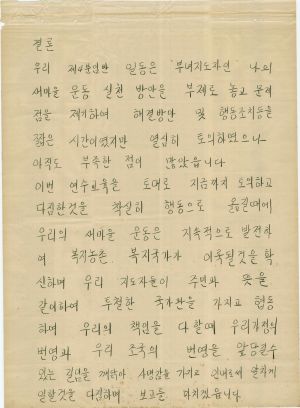 결론
우리 제4분임반 일동은 "부녀지도자인 나의
새마을 운동 실천 방안"을 부제로 놓고 문제
점을 제기하여 해결방안 및 행동조치등을
짧은 시간이였지만 열심히 토의하였으나
아직도 부족한 점이 많았읍니다
이번 연수교육을 토대로 지금까지 토의하고
다짐한것을 착실히 행동으로 옮길때에
우리의 새마을 운동은 지속적으로 발전하
여 복지농촌 복지국가가 이룩될것을 확
신하며 우리 지도자들이 주민과 뜻을
같이하여 투철한 국가관을 가지고 협동
하여 우리의 책임을 다할때 우리가정의
번영과 우리 조국의 번영을 앞당길수
있는 길임을 깨닫아 사명감을 가지고 알차게
일할것을 다짐하며 보고를 마치겠읍니다